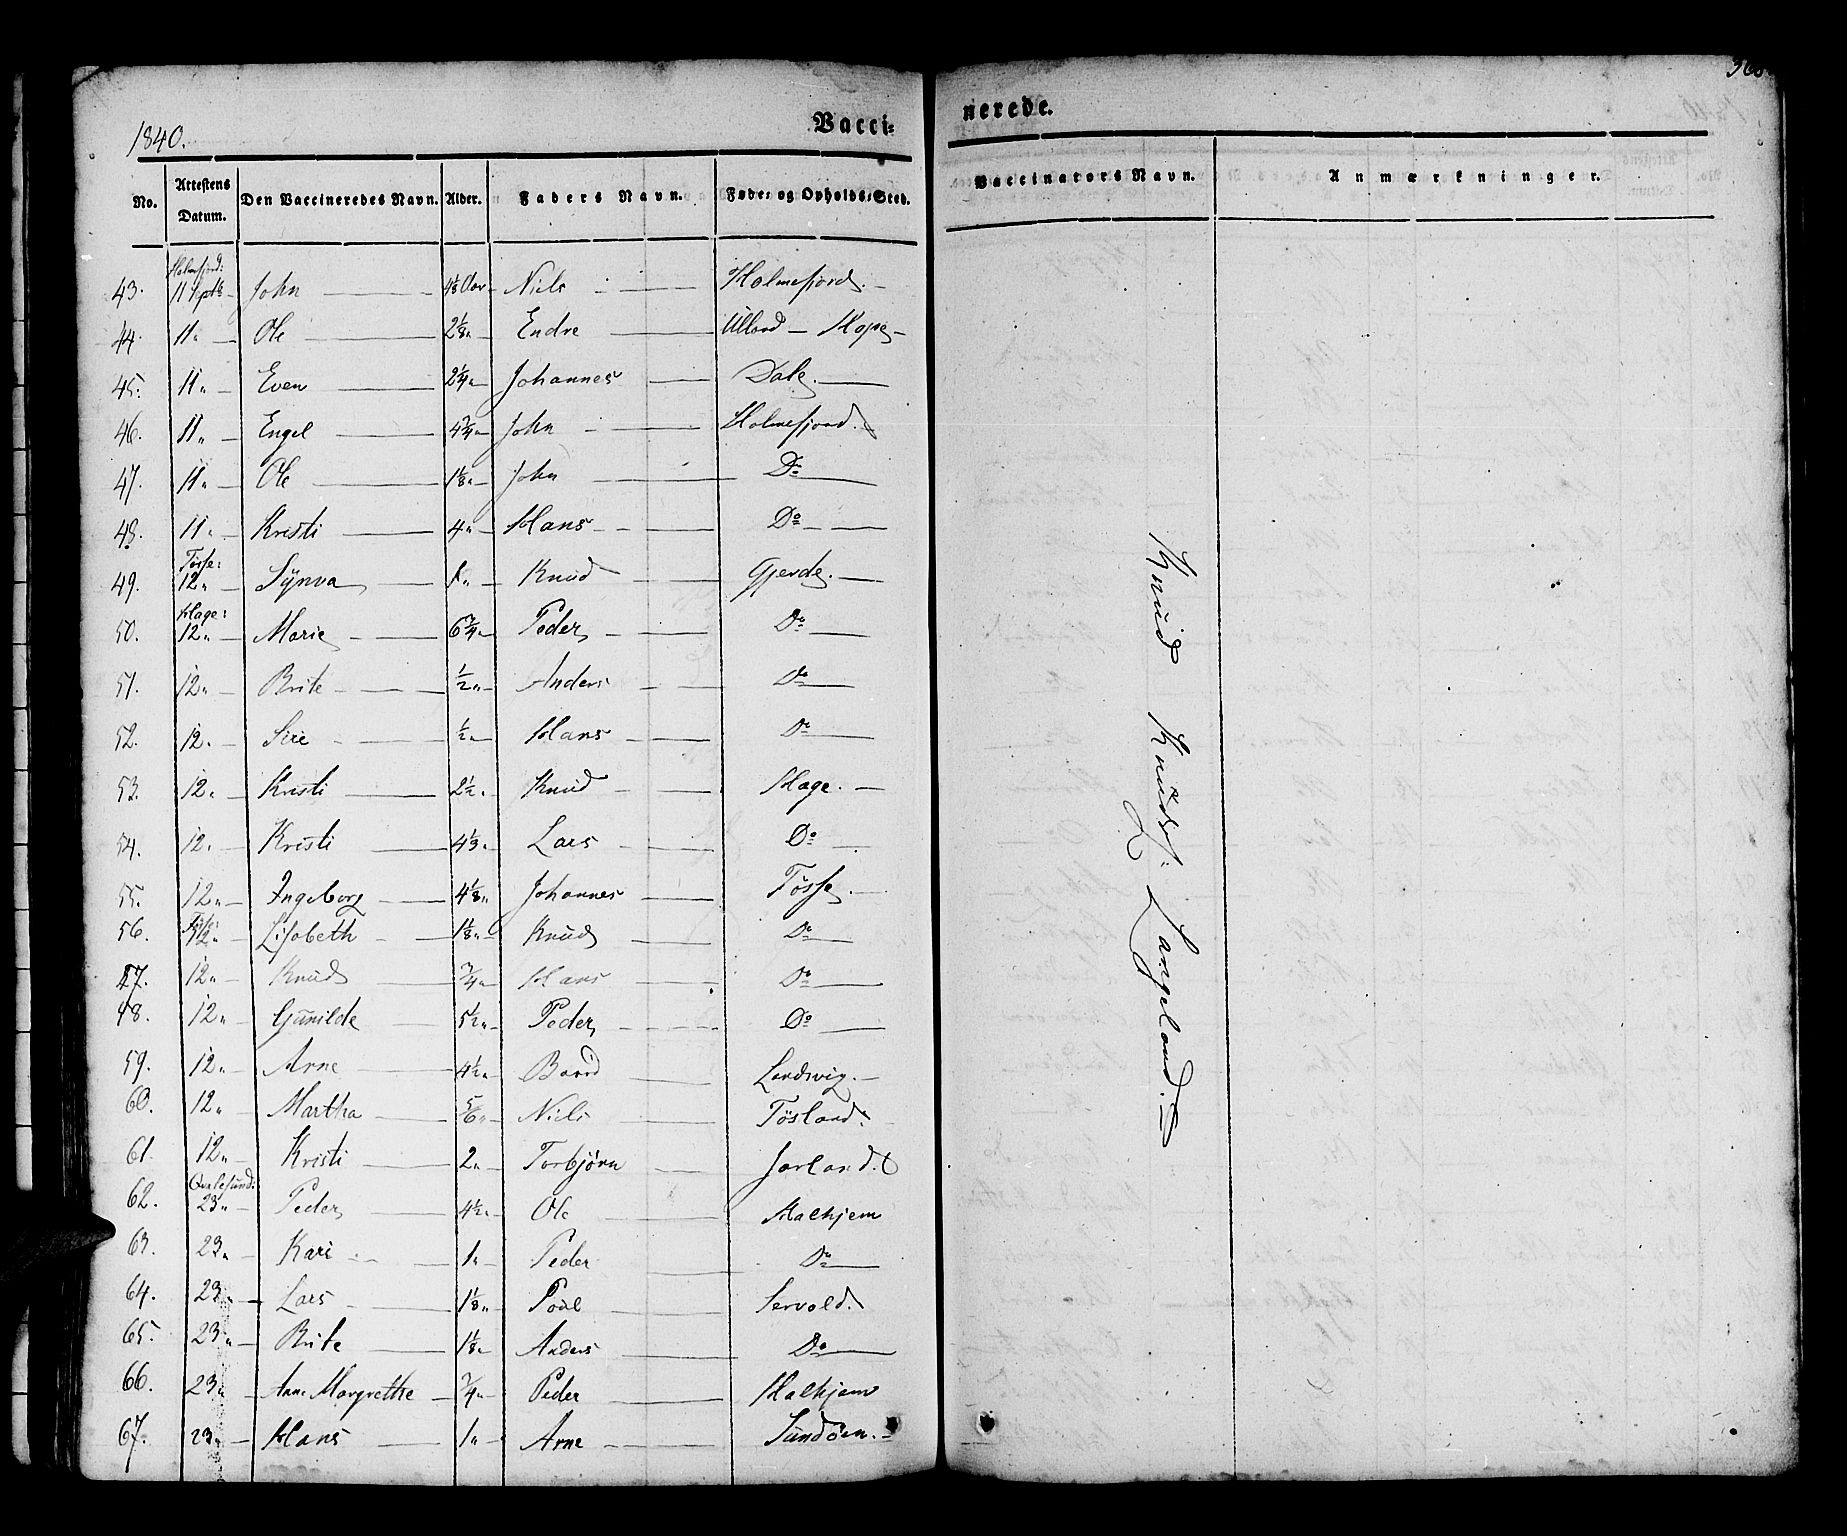 1840.
Vacci-
nerede.
No.
Attestens Datum.
Den Vaccineredes Navn.
Alder.
Faders Navn.
Føde- og Opholds-Sted.
Vaccinators Navn.
Anmærkninger.
43. Holmefjord: 11 Septb John Niels Holmefjord.
44. 11 " Ole 2⅛ " Endre Ulland
45. 11 " Even 2¼ " Johannes Dale.
46. 11 " Engel 4¾ " John Holmefjord.
47. 11 " Ole 1⅛ " John Do
48. 11 " Kristi 4 " Hans Do
49. Tøsse: 12 " Synva Knud Gjerde.
50. Hage: 12 " Marie 6¾ " Peder Do
51. 12 " Brite ½ " Anders Do
52. 12 " Siri ½ " Hans Do
53. 12 " Kristi 2½ " Knud Hage.
54. 12 " Kristi 4⅓ " Lars Do
55. 12 " Ingeborg 4⅛ " Johannes Tøsse.
56. 12 " Lisbeth 1⅛ " Knud Do
57. 12 " Knud ¾ " Hans Do
58. 12 " Gunilde 5½ " Peder Do
59. 12 " Arne 4½ " Baard Landsvig.
60. 12 " Martha ⅚ " Niels Tøsland.
61. 12 " Kristi 2 " Torbjørn Jarland.
62. 23 " Peder 4½ " Ole Malkjem
63. 23 " Kari 1 " Peder Do
64. 23 " Lars 1⅛ " Poul Servold.
65. 23 " Brite 1⅛ " Anders Do
66. 23 " Ane Margrethe ¾ " Peder Malkjem
67. 23 " Hans 1 " Arne Sundøen.
Knud Knuds: Langeland.